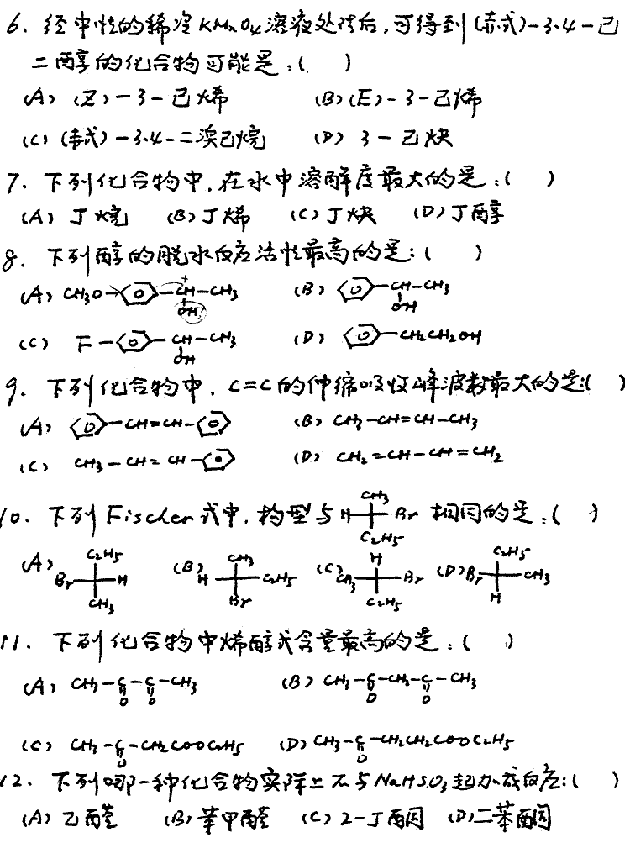 6. 经中性的稀冷KMnO4溶液处理后,可得到(赤式)-3.4-己
二醇的化合物可能是:( )
(A) (Z)-3-己烯 (B)(E)-3-己烯
(C) (赤式)-3.4-二溴己烷 (D) 3-己炔
7. 下列化合物中,在水中溶解度最大的是:( )
(A) 丁烷 (B)丁烯 (C)丁炔 (D)丁醇
8. 下列醇的脱水反应活性最高的是:( )
(A) CH3O CH-CH3 OH (B) CH-CH3 OH
(C) F CH-CH3 OH (D) CH2CH2OH
9. 下列化合物中,C=C的伸缩吸收峰波数最大的是( )
(A) CH=CH- (B) CH3-CH=CH-CH3
(C) CH3-CH=CH- (D) CH2=CH-CH=CH2
10. 下列Fischer式中,构型与 H CH3 Br C2H5 相同的是:( )
(A) C2H5 Br H CH3 (B) CH3 H C2H5 Br (C) H CH3 Br C2H5 (D) C2H5 Br CH3 H
11. 下列化合物中烯醇式含量最高的是:( )
(A) CH3-C-C-CH3 O O (B) CH3-C-CH2-C-CH3 O O
(C) CH3-C-CH2COOC2H5 O (D) CH3-C-CH2CH2COOC2H5 O
12. 下列哪一种化合物实际上不与NaHSO3起加成反应:( )
(A) 乙醛 (B) 苯甲醛 (C) 2-丁酮 (D)二苯酮